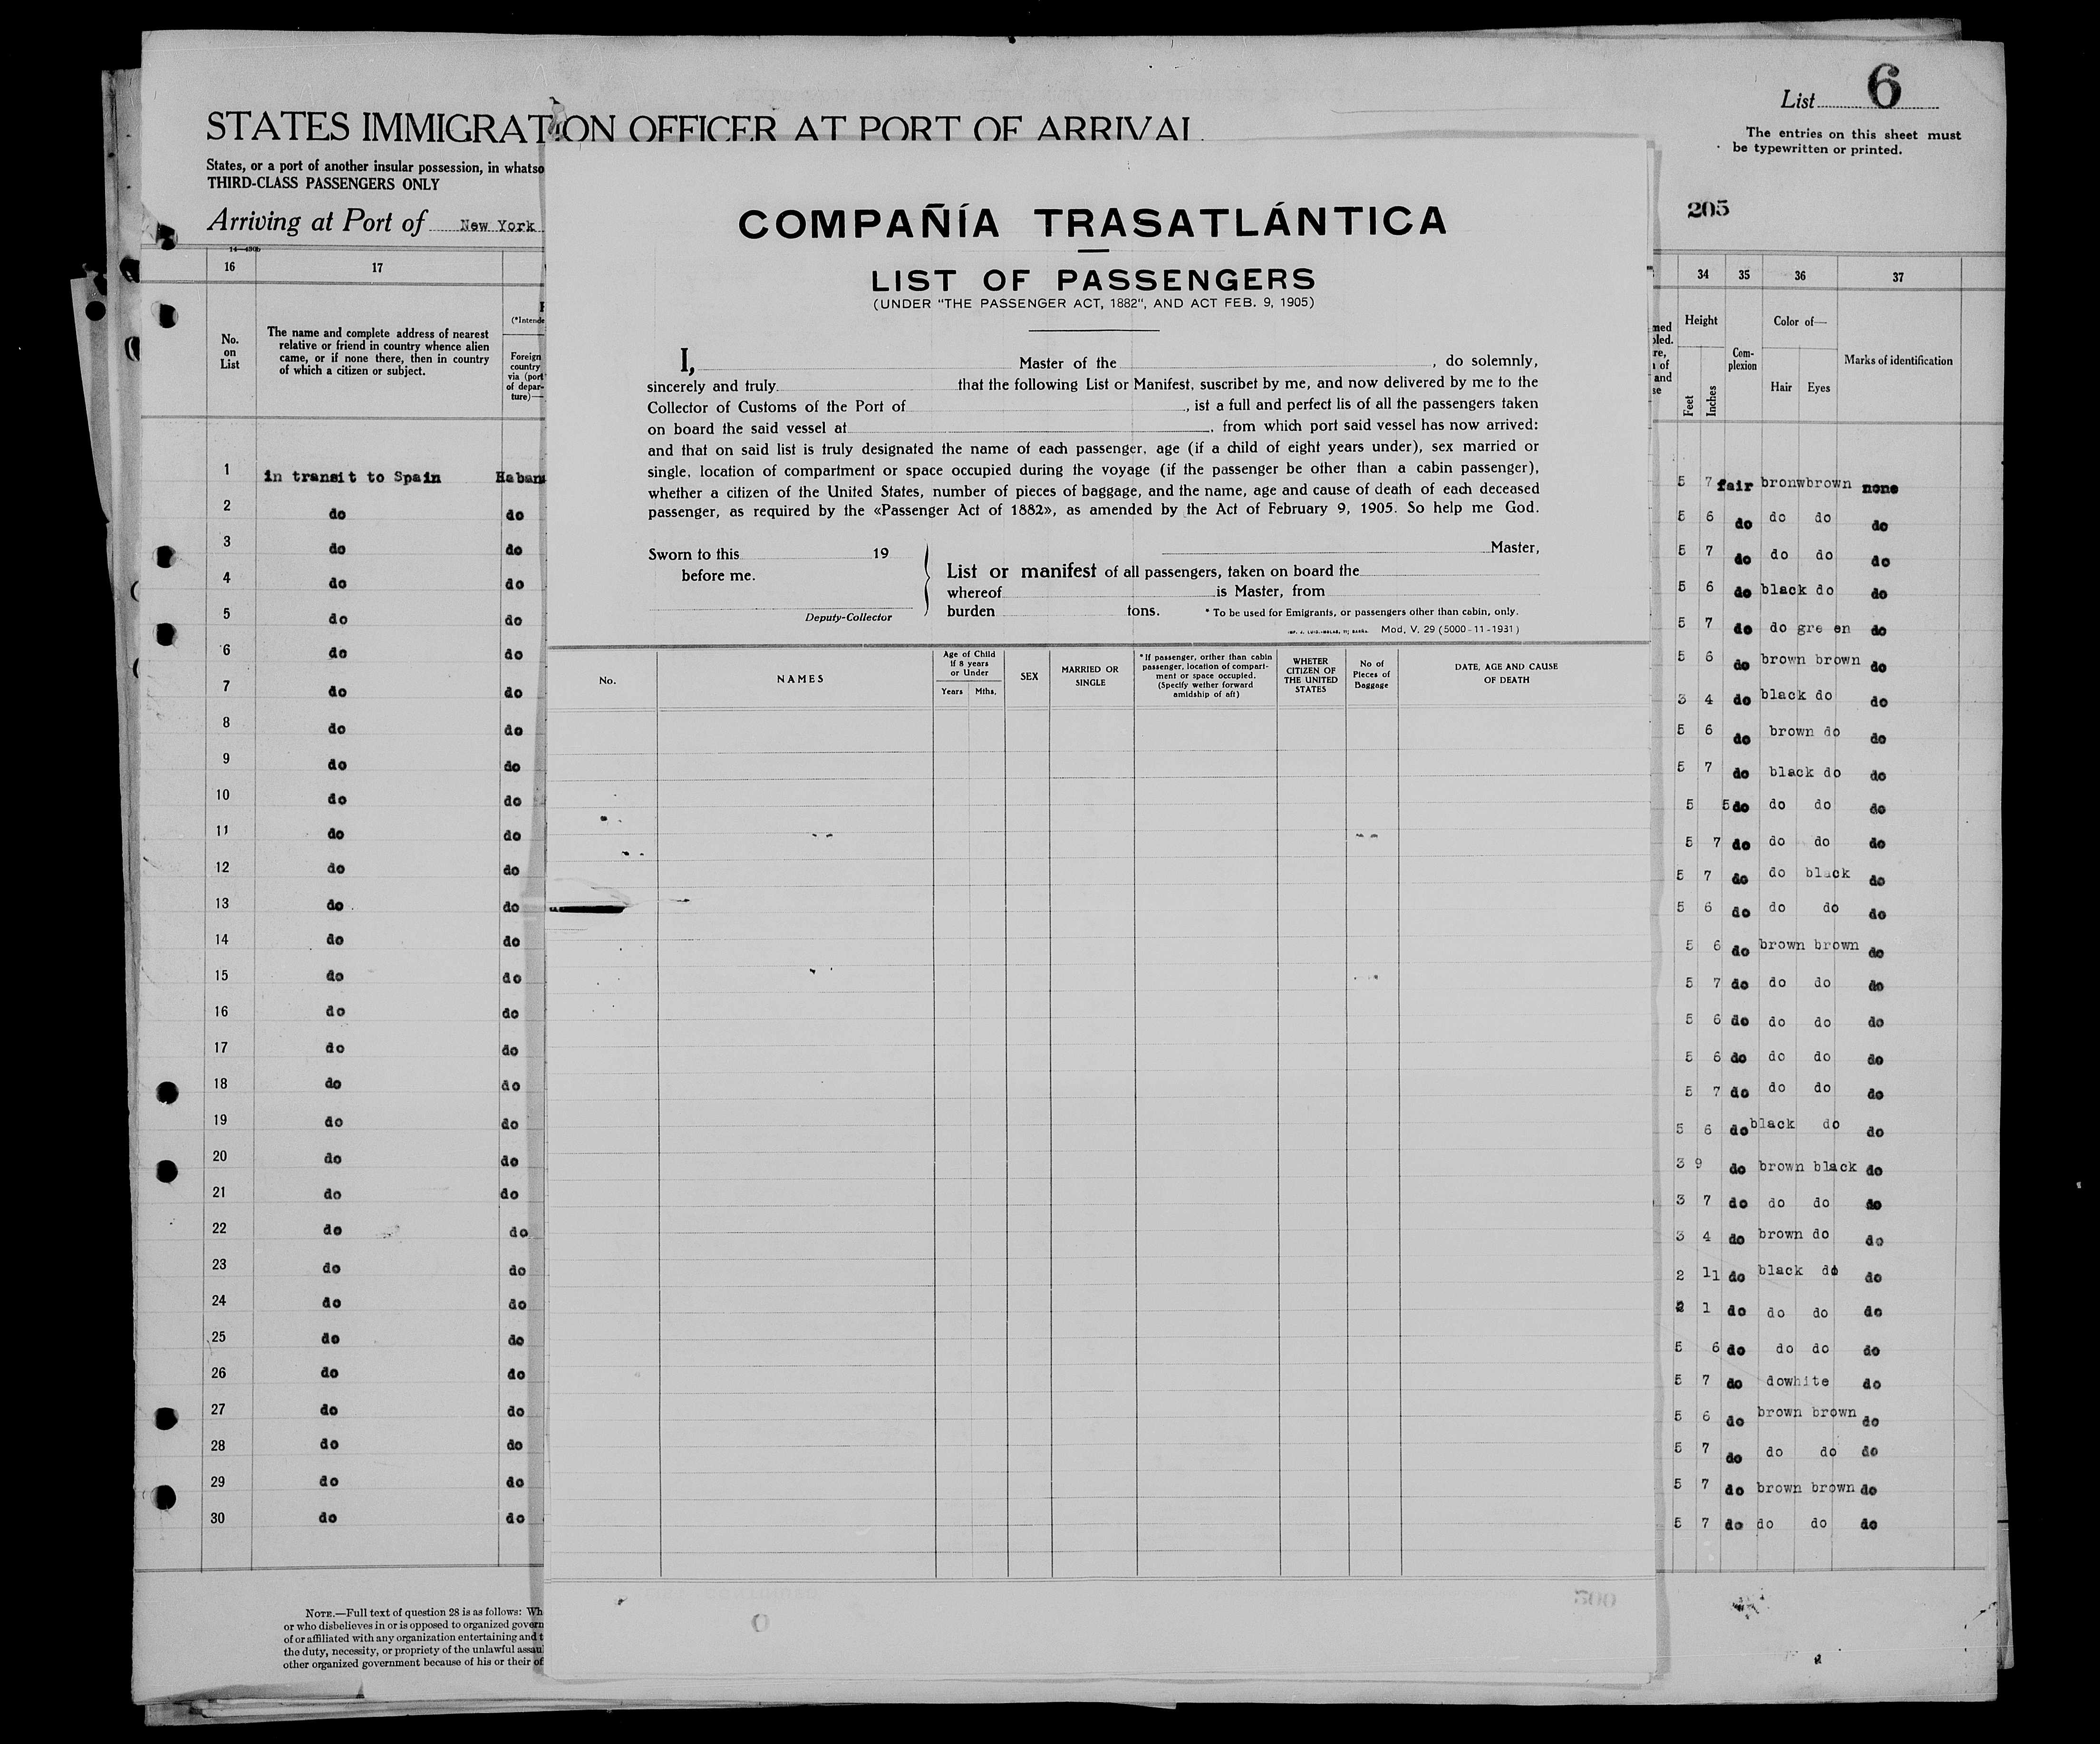 List 6
The entries on this sheet must
be typewritten or printed.
STATES IMMIGRATION OFFICER AT PORT OF ARRIVAL
States, or a port of another insular possession, in whatso
THIRD-CLASS PASSENGERS ONLY
Arriving at Port of New York
205
COMPAÑÍA TRASATLÁNTICA
LIST OF PASSENGERS
(UNDER "THE PASSENGER ACT, 1882", AND ACT FEB. 9, 1905)
I, Master of the , do solemnly,
sincerely and truly that the following List or Manifest, suscribet by me, and now delivered by me to the
Collector of Customs of the Port of , ist a full and perfect lis of all the passengers taken
on board the said vessel at , from which port said vessel has now arrived:
and that on said list is truly designated the name of each passenger, age (if a child of eight years under), sex married or
single, location of compartment or space occupied during the voyage (if the passenger be other than a cabin passenger),
whether a citizen of the United States, number of pieces of baggage, and the name, age and cause of death of each deceased
passenger, as required by the «Passenger Act of 1882», as amended by the Act of February 9, 1905. So help me God.
Sworn to this 19
before me.
Deputy-Collector
Master,
List or manifest of all passengers, taken on board the
whereof is Master, from
burden tons. * To be used for Emigrants, or passengers other than cabin, only.
Mod. V. 29 (5000-11-1931)
No.
NAMES
Age of Child
if 8 years
or Under
Years Mths.
SEX
MARRIED OR
SINGLE
* If passenger, orther than cabin
passenger, location of compart-
ment or space occupied.
(Specify wether forward
amidship of aft)
WHETER
CITIZEN OF
THE UNITED
STATES
No of
Pieces of
Baggage
DATE, AGE AND CAUSE
OF DEATH
500
16 17
No.
on
List
The name and complete address of nearest
relative or friend in country whence alien
came, or if none there, then in country
of which a citizen or subject.
(*Intende
Foreign
country
via (port
of depar-
ture)—
34 35 36 37
Height
Feet
Inches
Com-
plexion
Color of—
Hair Eyes
Marks of identification
1 in transit to Spain Haban 5 7 fair bronwbrown none
2 do do 5 6 do do do do
3 do do 5 7 do do do do
4 do do 5 6 do black do do
5 do do 5 7 do do gre en do
6 do do 5 6 do brown brown do
7 do do 3 4 do black do do
8 do do 5 6 do brown do do
9 do do 5 7 do black do do
10 do do 5 5 do do do do
11 do do 5 7 do do do do
12 do do 5 7 do do black do
13 do do 5 6 do do do do
14 do do 5 6 do brown brown do
15 do do 5 7 do do do do
16 do do 5 6 do do do do
17 do do 5 6 do do do do
18 do do 5 7 do do do do
19 do do 5 6 do black do do
20 do do 3 9 do brown black do
21 do do 3 7 do do do do
22 do do 3 4 do brown do do
23 do do 2 11 do black do do
24 do do 2 1 do do do do
25 do do 5 6 do do do do
26 do do 5 7 do dowhite do
27 do do 5 6 do brown brown do
28 do do 5 7 do do do do
29 do do 5 7 do brown brown do
30 do do 5 7 do do do do
NOTE.—Full text of question 28 is as follows: Wh
or who disbelieves in or is opposed to organized govern
of or affiliated with any organization entertaining and t
the duty, necessity, or propriety of the unlawful assau
other organized government because of his or their of